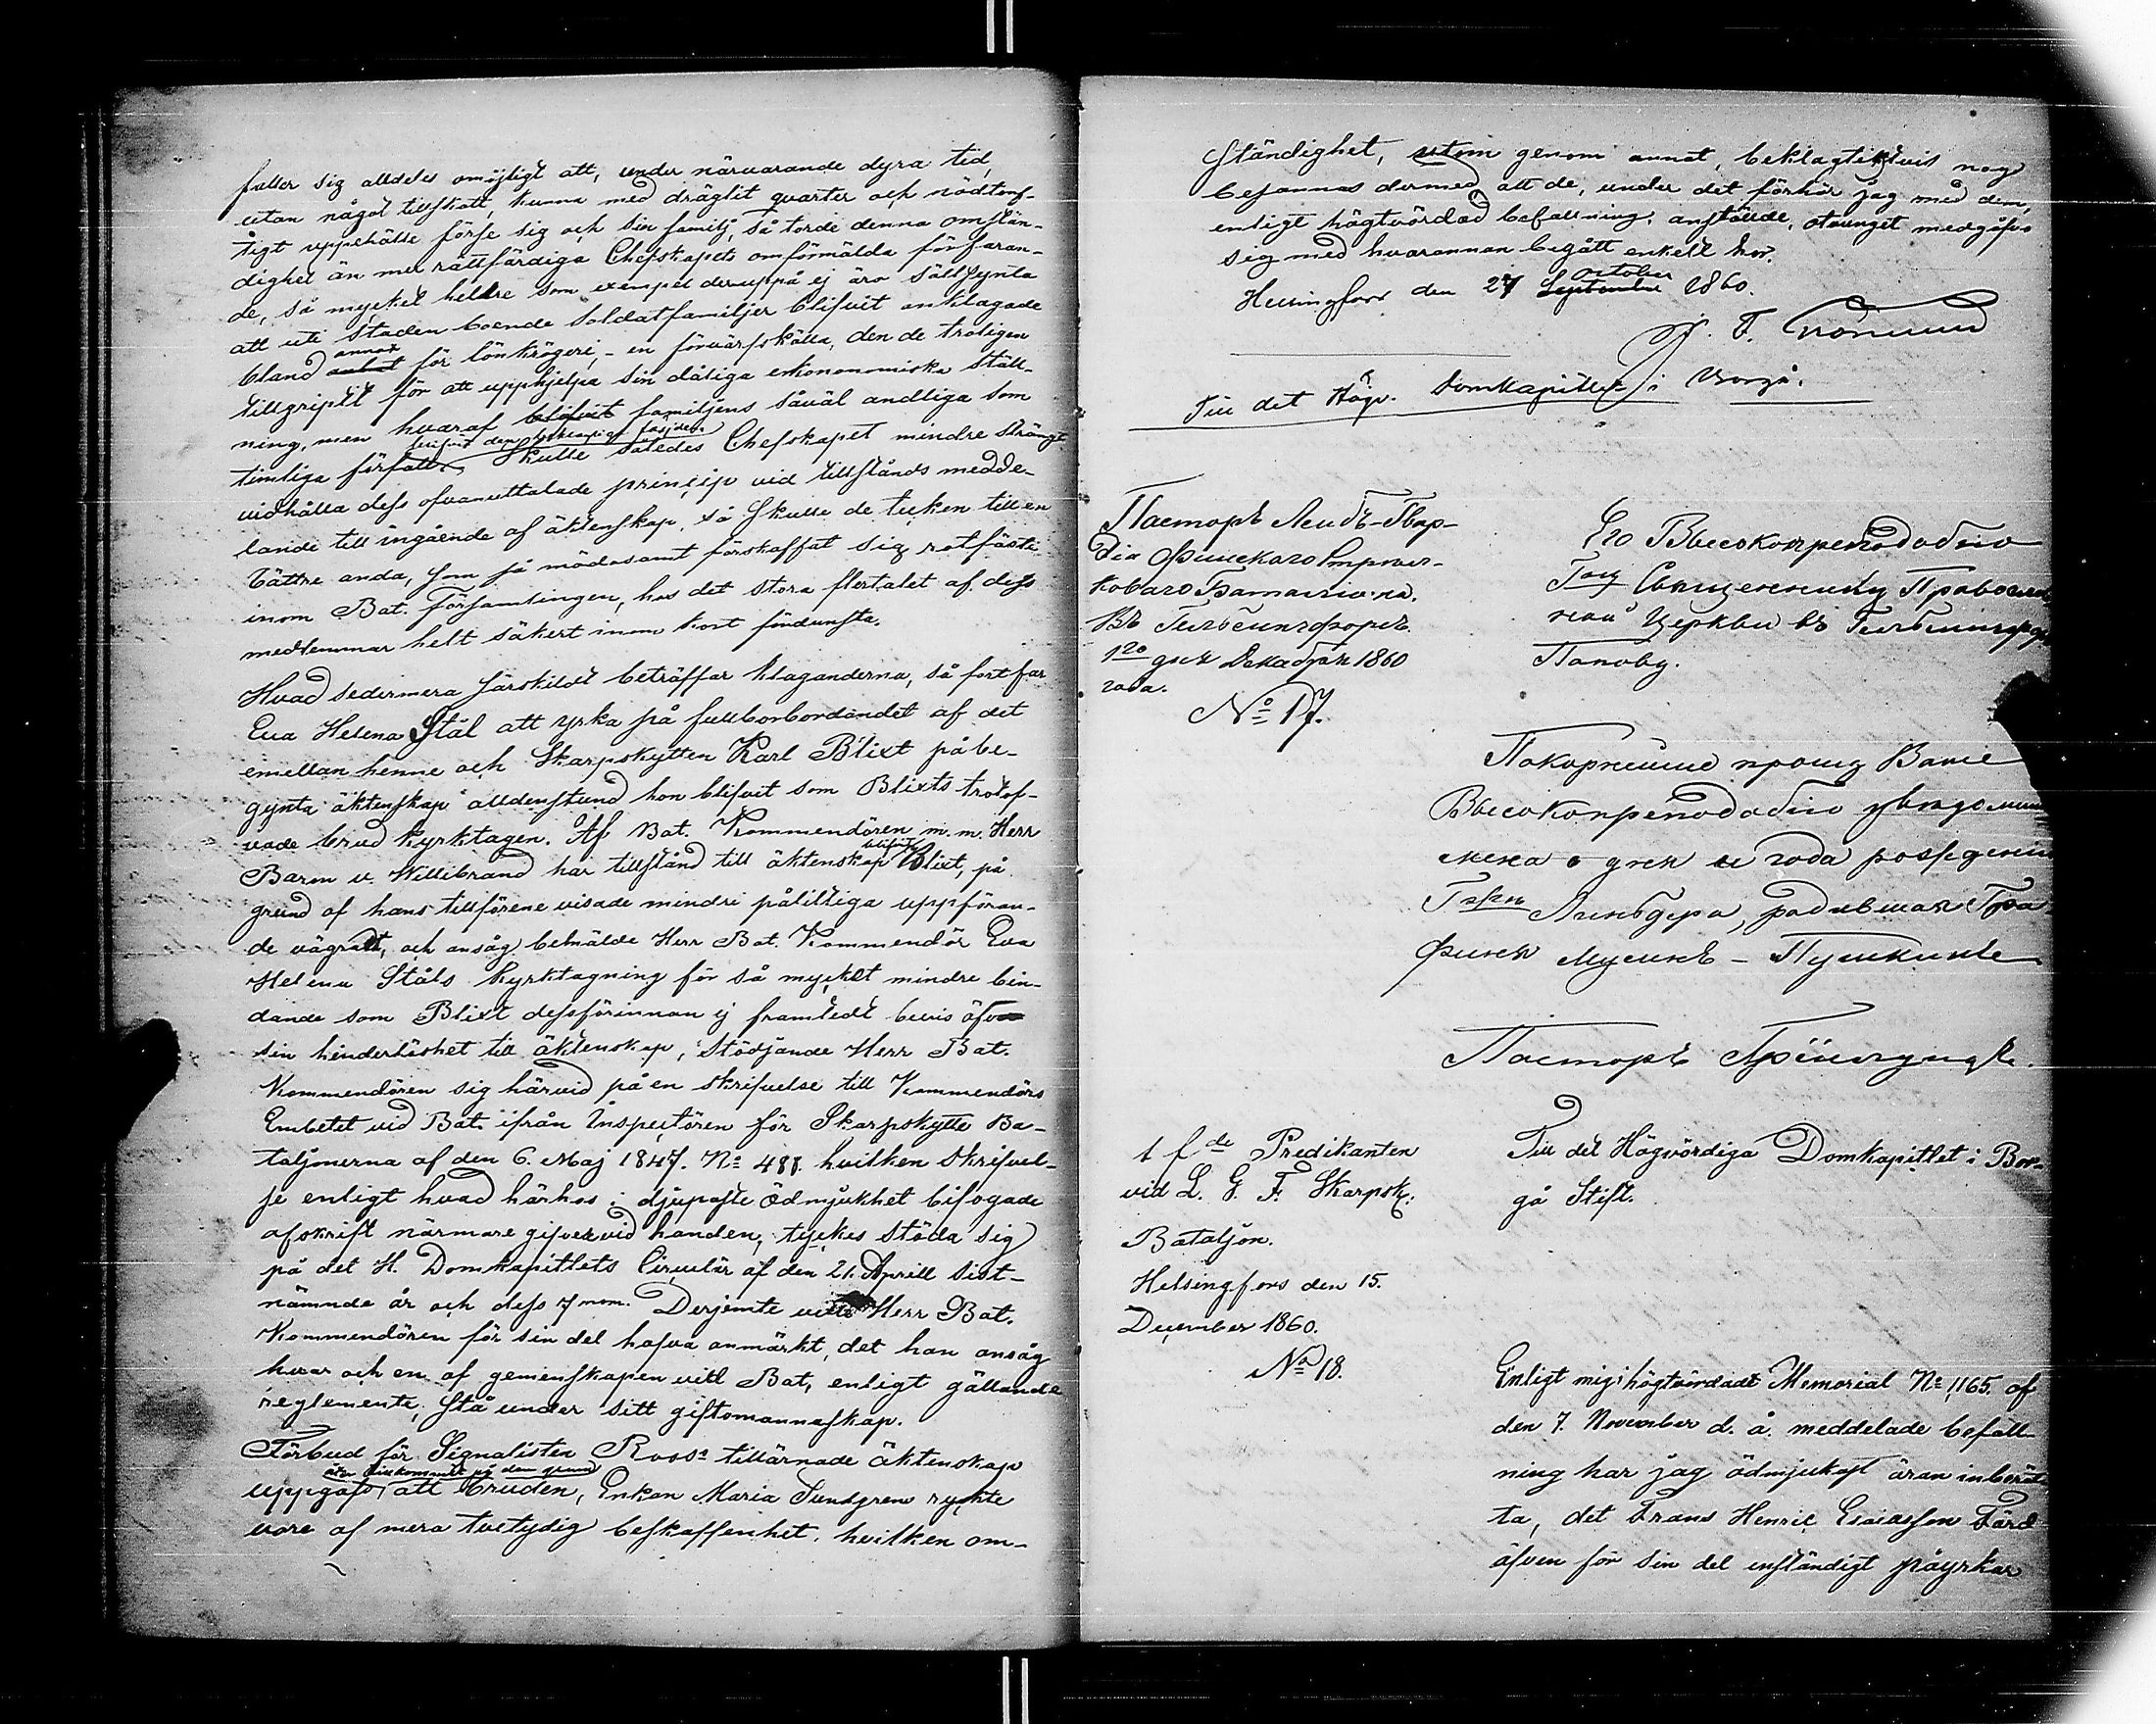 faller sig alldeles omöjligt att, under närvarande dyra tid,
utan något tillskott, kunna med drägligt qvarter och nödtorf-
tigt uppehälle förse sig och sin familj, så torde denna omstän-
dighet än mer rättfärdiga Chefskapets omförmälda förfaran-
de, så mycket heldre som exempel deruppå ej äro sällsynta
att uti staden boende soldatfamiljer blifvit anklagade
bland annat för lönkrögeri, - en förvärfskälla, den de troligen
tillgripit för att upphjelpa sin dåliga ekononomiska ställ-
ning, men hvaraf blifvit familjens såväl andliga som
timliga förfall blifvit den följden. Skulle således Chefskapet mindre strängt
vidhålla dess ofvanuttalade princip vid tillstånds medde-
lande till ingående af äktenskap, så skulle de tecken till en
bättre anda, som så mödosamt förskaffat sig rotfäste
inom Bat. Församlingen, hos det stora flertalet af dess
medlemmar helt säkert inom kort fördunsta.
Hvad sedermera särskildt beträffar klaganderna, så fortfar
Eva Helena Stål att yrka på fullborbordandet af det
emellan henne och Skarpskytten Karl Blixt påbe-
gynta äktenskap alldenstund hon blifvit som Blixts trolof-
vade brud kyrktagen. Af Bat. Kommendören m. m. Herr
Baron v. Willebrand har tillstånd till äktenskap blifvit Blixt, på
grund af hans tillförene visade mindre pålitliga uppföran-
de vägradt, och ansåg bemälde Herr Bat. Kommendör Eva
Helena Ståls kyrktagning för så mycket mindre bin-
dande som Blixt dessförinnan ej framtedt bevis öfver
sin hinderlöshet till äktenskap, stödjande Herr Bat.
Kommendören sig härvid på en skrifvelse till Kommendörs
Embetet vid Bat. ifrån Inspectören för Skarpskytte Ba-
taljonerna af den 6. Maj 1847. No 488. hvilken skrifvel-
se enligt hvad härhos i djupaste ödmjukhet bifogade
afskrift närmare gifver vid handen, tyckes stöda sig
på det H. Domkapitlets Circulär af den 21. Aprill sist-
nämnde år och dess 7 mom. Derjemte ville Herr Bat.
Kommendören för sin del hafva anmärkt, det han ansåg
hvar och en af gemenskapen vid Bat. enligt gällande
reglemente, stå under sitt giftomannaskap.
Förbud för Signalisten Ross tillärnade äktenskap
uppgafs åter tillkommit på den grund att bruden, Enkan Maria Sundgrens rykte
vore af mera tvetydig beskaffenhet, hvilken om-
ständighet, utom genom annat, beklagligtvis nog
besannas dermed att de, under det förhör jag med dem,
enligt högtvördad befallning, anställde, otvunget medgåfvo
sig med hvarannan begått enkelt hor.
Helsingfors den 27 September october 1860.
F. Grönlund
Till det Högv. Domkapitlet i Borgå.
Пасторъ Лейбъ-Гвар-
діи Финскаго Стрѣл-
коваго Баталіона.
Въ Гельсингфорсѣ.
12го дня Декабря 1860
года.
No 17.
Его Высокопреподобію
Священнику Православ
ной Церкви въ Гельсингф
Попову.
Покорнѣйше прошу Ваше
Высокопреподобіе увѣдоми
меня о днѣ и года рожденія
Линдера, родившая Гра
финя Мусинъ - Пушкина
Пасторъ Грёнлундъ.
t. fde Predikanten
vid L. G. F. Skarpsk:
Bataljon.
Helsingfors den 15.
December 1860.
No 18.
Till det Högvördiga Domkapitlet i Bor-
gå Stift.
Enligt mig i högtvördadt Memorial No 1165. af
den 7. November d. å. meddelade befall-
ning har jag ödmjukast äran inberät-
ta, det Frans Henric Esaiasson Färd
äfven för sin del enständigt påyrkar